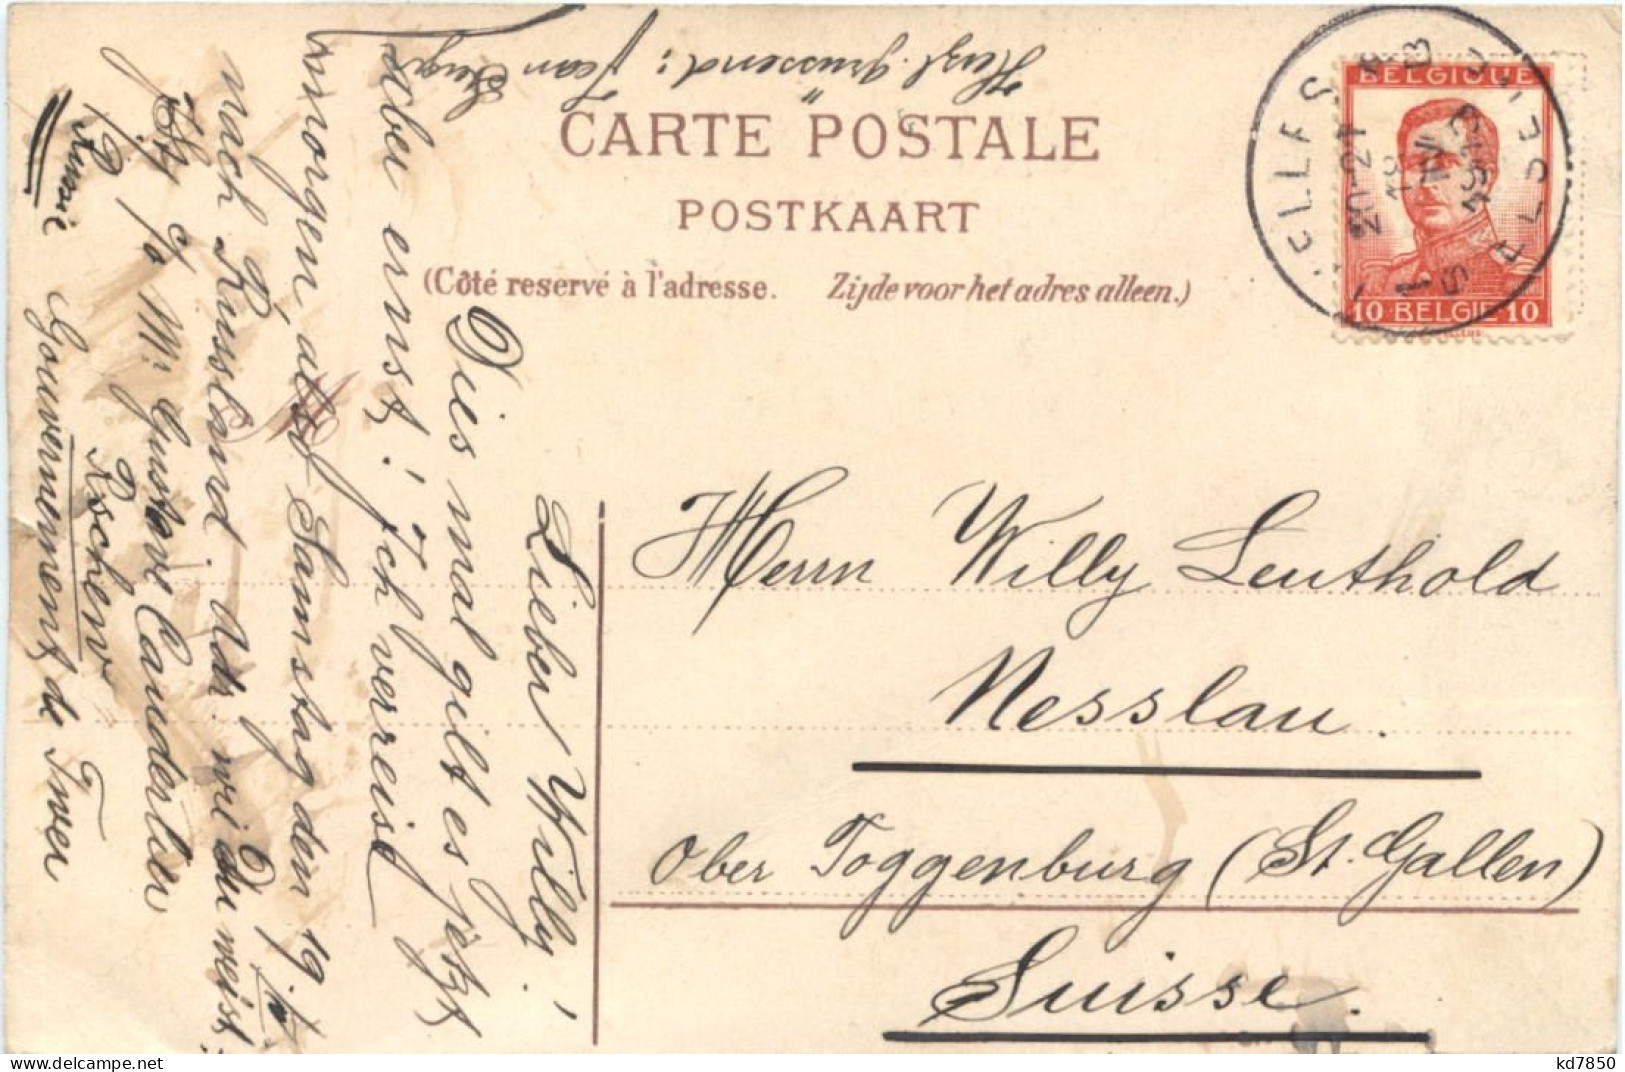 CARTE POSTALE
POSTKAART
(Côté reservé à l'adresse. Zijde voor het adres alleen.)
BELGIQUE
10 BELGIE 10
20-21
18
IV
1913
Herrn Willy Leuthold
Nesslau.
Ober Toggenburg (St. Gallen)
Suisse.
Lieber Willy!
Dies mal gilt es jetzt
aber ernst! Ich verreise
morgen, also Samstag den 19.
nach Russland. Adr. wie Du weist:
Mr. Gustave Canderlier
Rschew
Gouvernement de Twer
Russie
Herzl. grüssend: Jean
kd7850